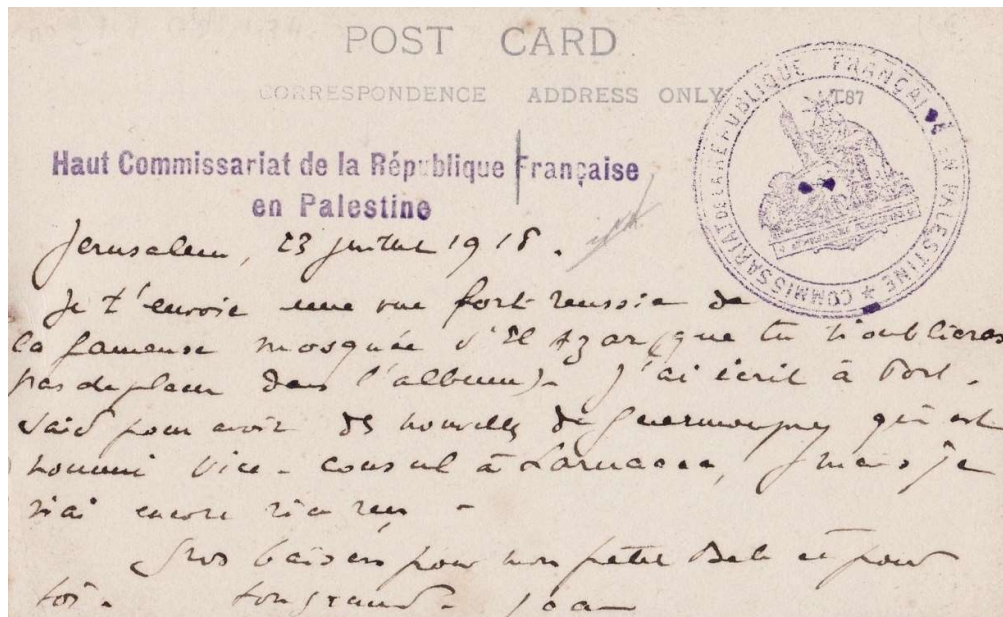 POST CARD
CORRESPONDENCE ADDRESS ONLY
COMMISSARIAT DE LA RÉPUBLIQUE FRANÇAISE EN PALESTINE
T87
Haut Commissariat de la République Française
en Palestine
Jerusalem, 23 juillet 1918.
Je t'envoie une vue fort reussie de
la fameuse mosquée d'El Azar (que tu n'oublieras
pas de placer dans l'album). J'ai écrit à Port-
Said pour avoir des nouvelles de qui est
nommé Vice-consul à Larnaca, mais je
n'ai encore rien reçu -
Gros baisers pour mon petit Bab et pour
toi. ton grand Jean